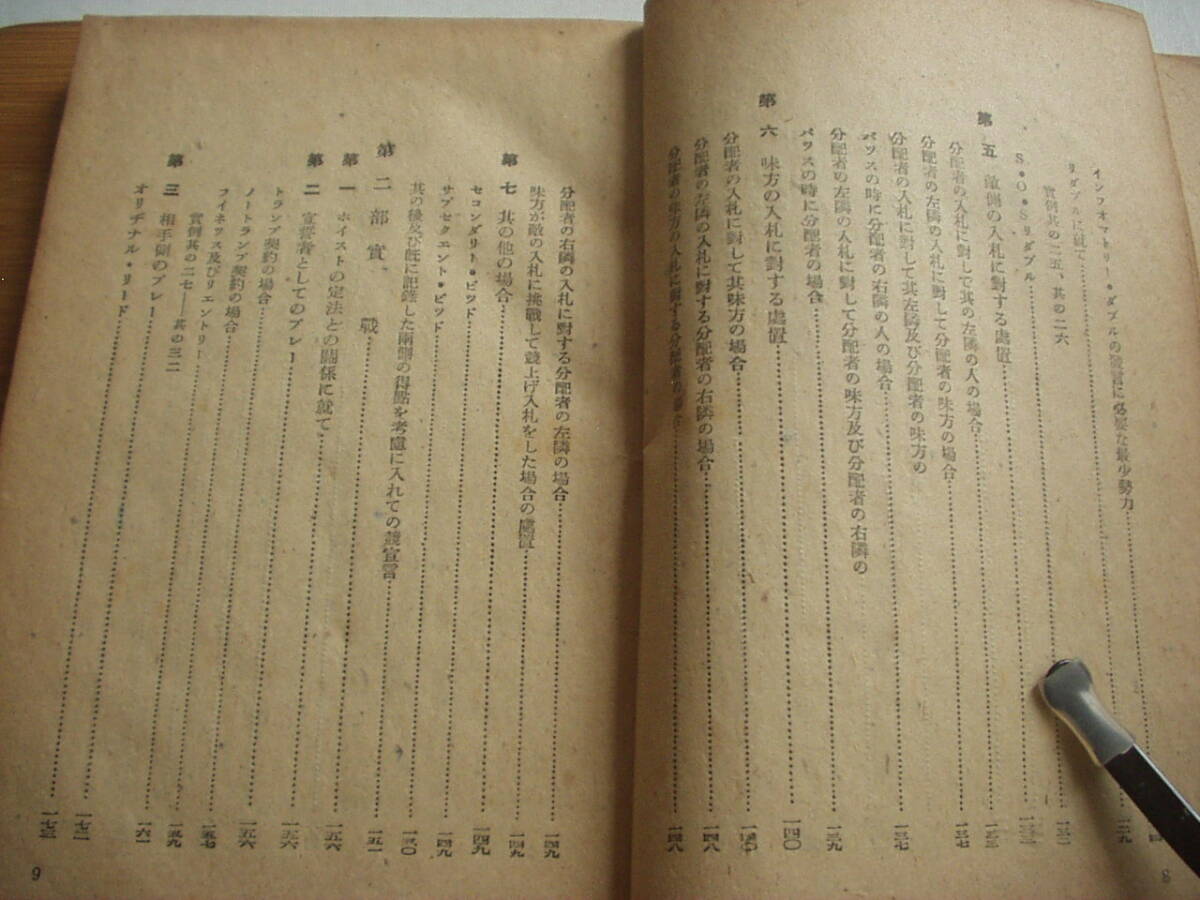 インフオマトリ・ダブルの宣言に必要な最少勢力……一二九
リダブルに就て
實例其の二五、其の二六
S・O・Sリダブル
第五 敵側の入札に對する處置
分配者の入札に對して其の左隣の人の場合
分配者の左隣の入札に對して分配者の味方の場合
分配者の入札に對して其左隣及び分配者の味方の
パツスの時に分配者の右隣の人の場合……一三七
分配者の左隣の人の入札に對して分配者の味方及び分配者の右隣の
パツスの時に分配者の場合……一三九
第六 味方の入札に對する處置……一四〇
分配者の入札に對して其味方の場合……一四〇
分配者の左隣の入札に對する分配者の右隣の場合……一四八
分配者の味方の入札に對する分配者の場合……一四八
8
分配者の右隣の入札に對する分配者の左隣の場合……一四九
味方が敵の入札に挑戰して競上げ入札をした場合の處置……一四九
第七 其の他の場合……一四九
セコンダリー・ビツド……一四九
サブセクエント・ビツド……一五〇
其の後及び既に記錄した兩側の得點を考慮に入れての競宣言……一五一
第二部 實戰……一五六
第一 ホイストの定法との關係に就て……一五六
第二 宣言者としてのプレー……一五六
トランプ契約の場合……一五七
ノートランプ契約の場合……一五九
フイネツス及びリエントリー……一六一
實例其の二七──其の三二
第三 相手側のプレー……一七二
オリヂナル・リード……一七三
9